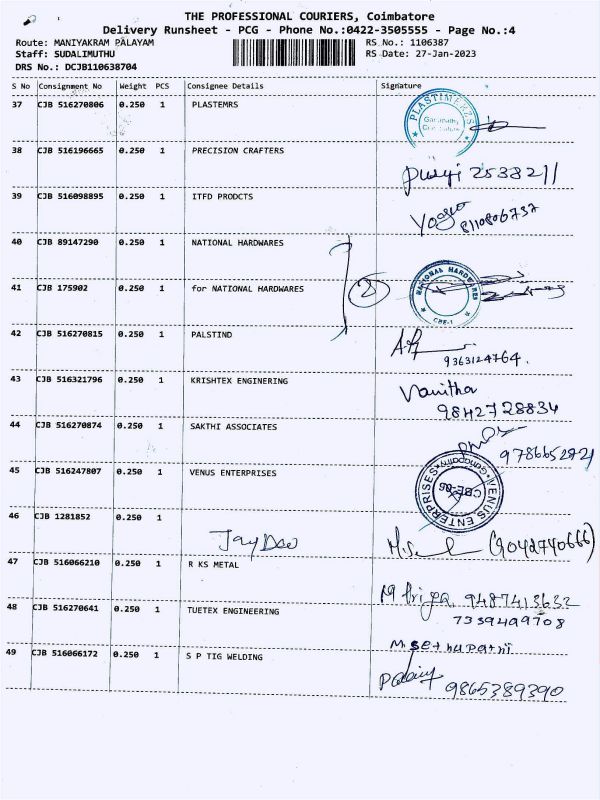 THE PROFESSIONAL COURIERS, Coimbatore
Delivery Runsheet - PCG - Phone No.:0422-3505555 - Page No.:4
Route: MANIYAKRAM PALAYAM RS No.: 1106387
Staff: SUDALIMUTHU RS Date: 27-Jan-2023
DRS No.: DCJB110638704
S No Consignment No Weight PCS Consignee Details Signature
37 CJB 516270806 0.250 1 PLASTEMRS
PLASTIMERZS
38 CJB 516196665 0.250 1 PRECISION CRAFTERS
2538211
39 CJB 516098895 0.250 1 ITFD PRODCTS
8110806737
40 CJB 89147290 0.250 1 NATIONAL HARDWARES
2
41 CJB 175902 0.250 1 for NATIONAL HARDWARES
NATIONAL HARDWARES
CBE-1
42 CJB 516270815 0.250 1 PALSTIND
9363124764.
43 CJB 516321796 0.250 1 KRISHTEX ENGINERING
Vanitha
9842728834
44 CJB 516270874 0.250 1 SAKTHI ASSOCIATES
45 CJB 516247807 0.250 1 VENUS ENTERPRISES
VENUS ENTERPRISES
Ganapathy
CBE-06
46 CJB 1281852 0.250 1
Jay Deo (9042740666)
47 CJB 516066210 0.250 1 R KS METAL
9487413632
48 CJB 516270641 0.250 1 TUETEX ENGINEERING
7339499708
M Sethupathi
49 CJB 516066172 0.250 1 S P TIG WELDING
9865389390